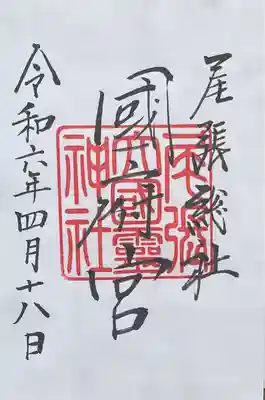 尾張総社
國府宮
尾張大國霊神社
令和六年四月十八日